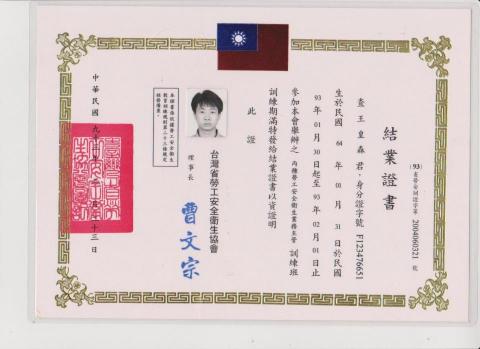 結業證書
(93)省勞安訓證字第 2004060321 號
查 王皇森 君,身分證字號 F123476651
生於民國 64 年 01 月 31 日於民國
93 年 01 月 30 日起至 93 年 02 月 01 日止
參加本會舉辦之 丙種勞工安全衛生業務主管 訓練班
訓練期滿特發給結業證書以資證明
此證
台灣省勞工安全衛生協會
理事長 曹文宗
本證書係依據勞工安全衛生
教育訓練規則第二十三條規定
核發
中華民國 九十 年 月 十三 日